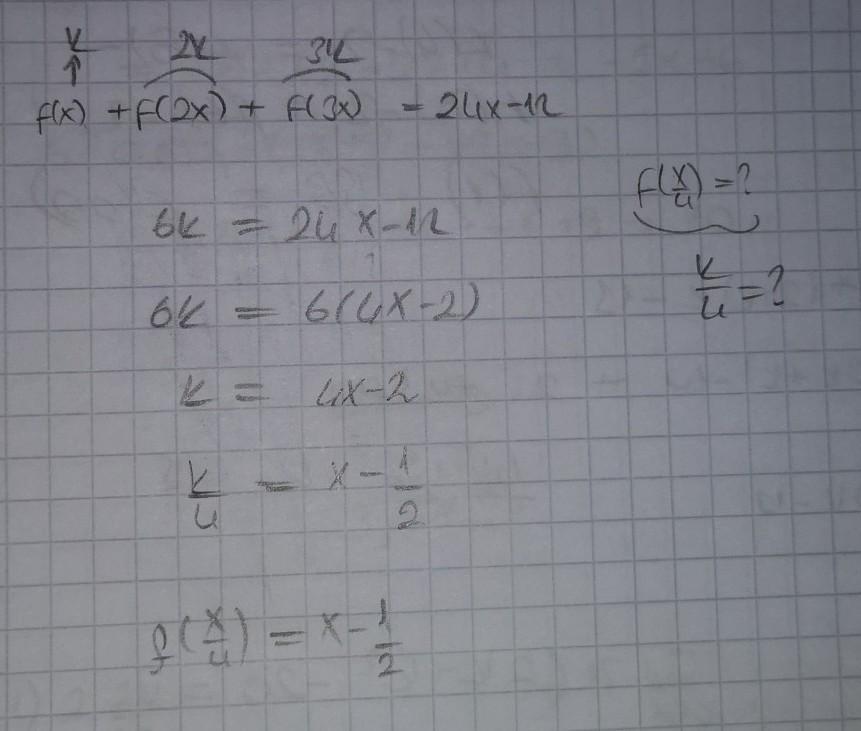 k 2k 3k
f(x) + f(2x) + f(3x) = 24x-12
f(x/4) = ?
6k = 24x-12
k/4 = ?
6k = 6(4x-2)
k = 4x-2
k/4 = x - 1/2
f(x/4) = x - 1/2